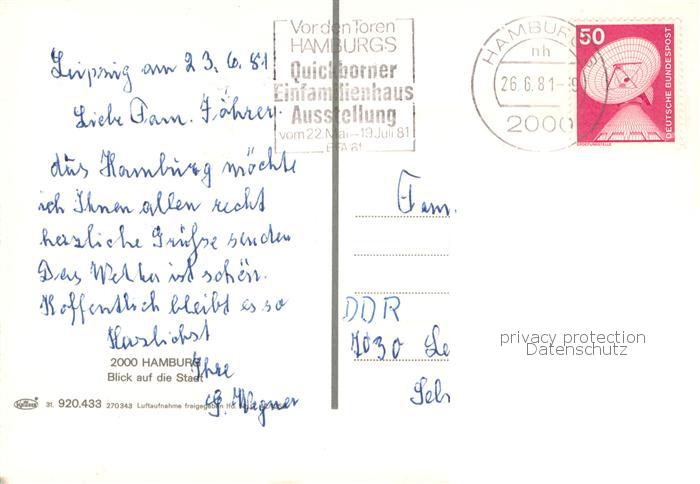 Vor den Toren
HAMBURGS
Quickborner
Einfamilienhaus
Ausstellung
vom 22. Mai - 19. Juli 81
EFA'81
HAMBURG
nh
26.6.81-
2000
50
DEUTSCHE BUNDESPOST
ERDFUNKSTELLE
Leipzig am 23.6.81
Liebe Fam.
aus Hamburg möchte
ich Ihnen allen recht
herzliche Grüsse senden
Das Wetter ist schön.
Hoffentlich bleibt es so
Herzlichst
Ihre
G. Wagner
2000 HAMBURG
Blick auf die Stadt
31. 920.433 270343 Luftaufnahme freigegeben
Fam.
DDR
7030 Le
privacy protection
Datenschutz